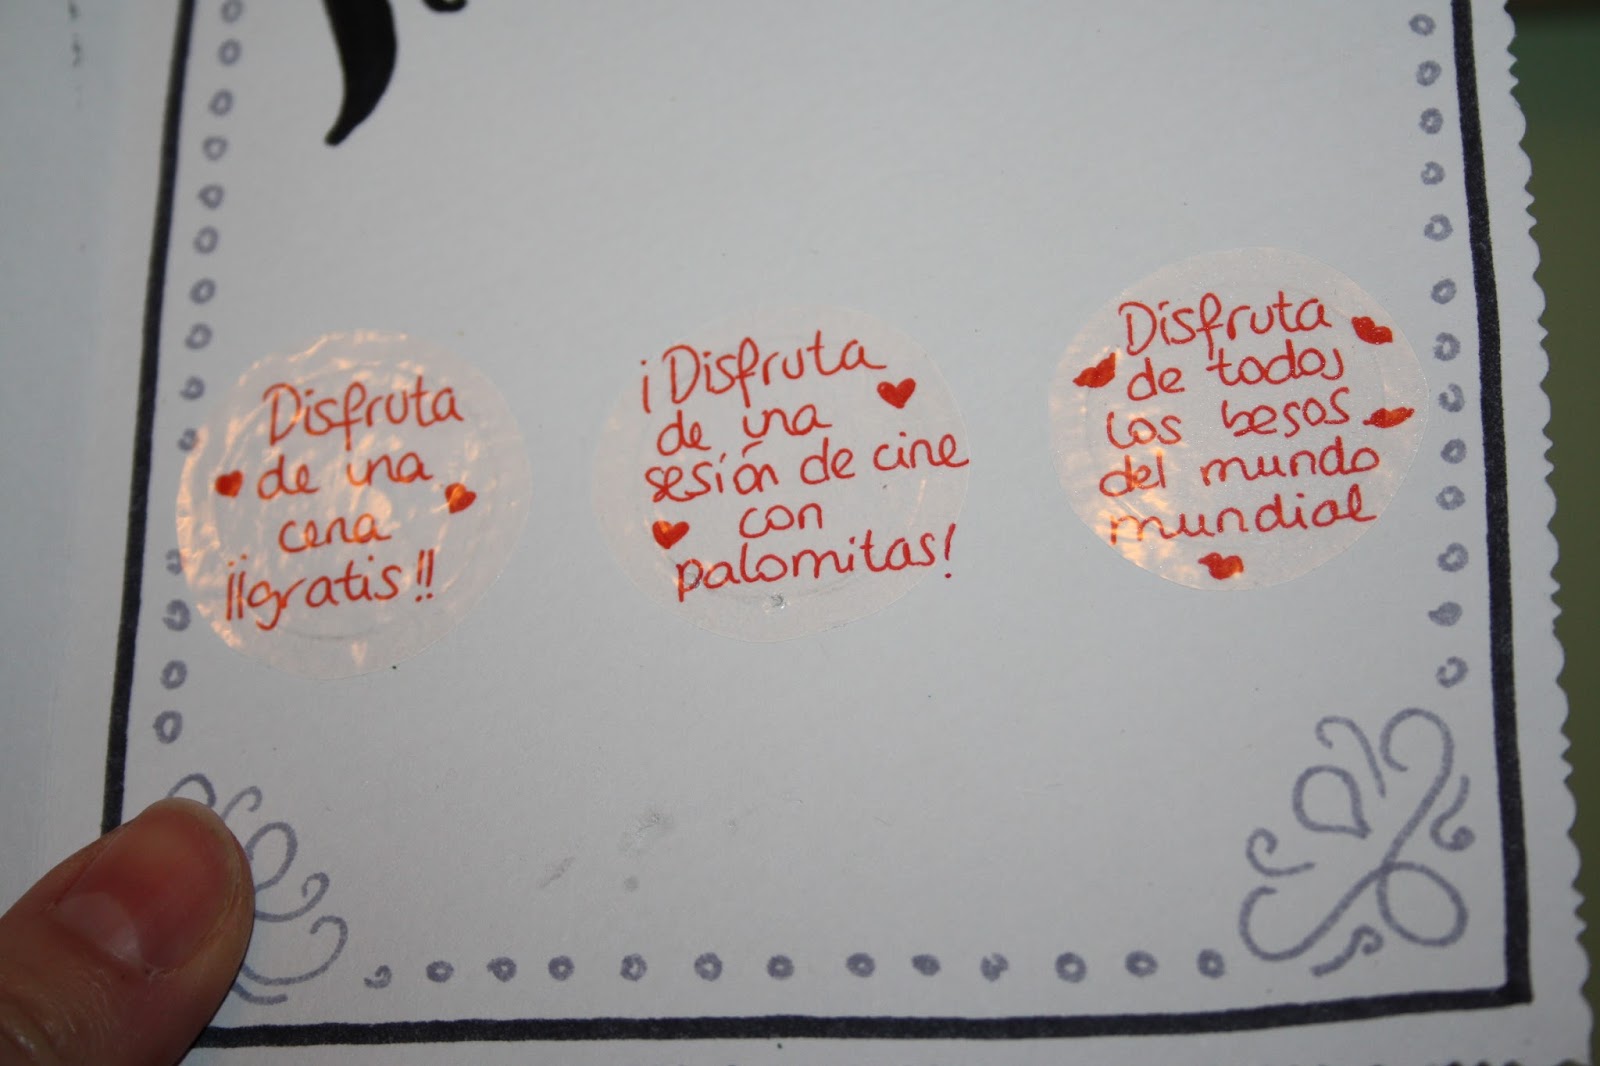 Disfruta
de una
cena
¡¡gratis!!
¡Disfruta
de una
sesión de cine
con
palomitas!
Disfruta
de todos
los besos
del mundo
mundial